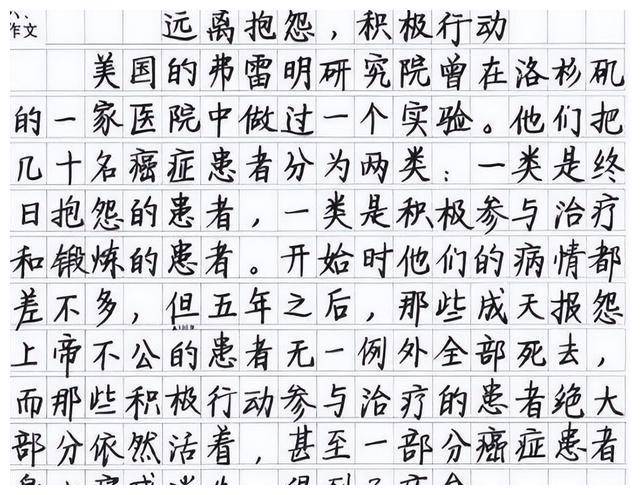 作文
远离抱怨，积极行动
美国的弗雷明研究院曾在洛杉矶
的一家医院中做过一个实验。他们把
几十名癌症患者分为两类：一类是终
日抱怨的患者，一类是积极参与治疗
和锻炼的患者。开始时他们的病情都
差不多，但五年之后，那些成天报怨
上帝不公的患者无一例外全部死去，
而那些积极行动参与治疗的患者绝大
部分依然活着，甚至一部分癌症患者